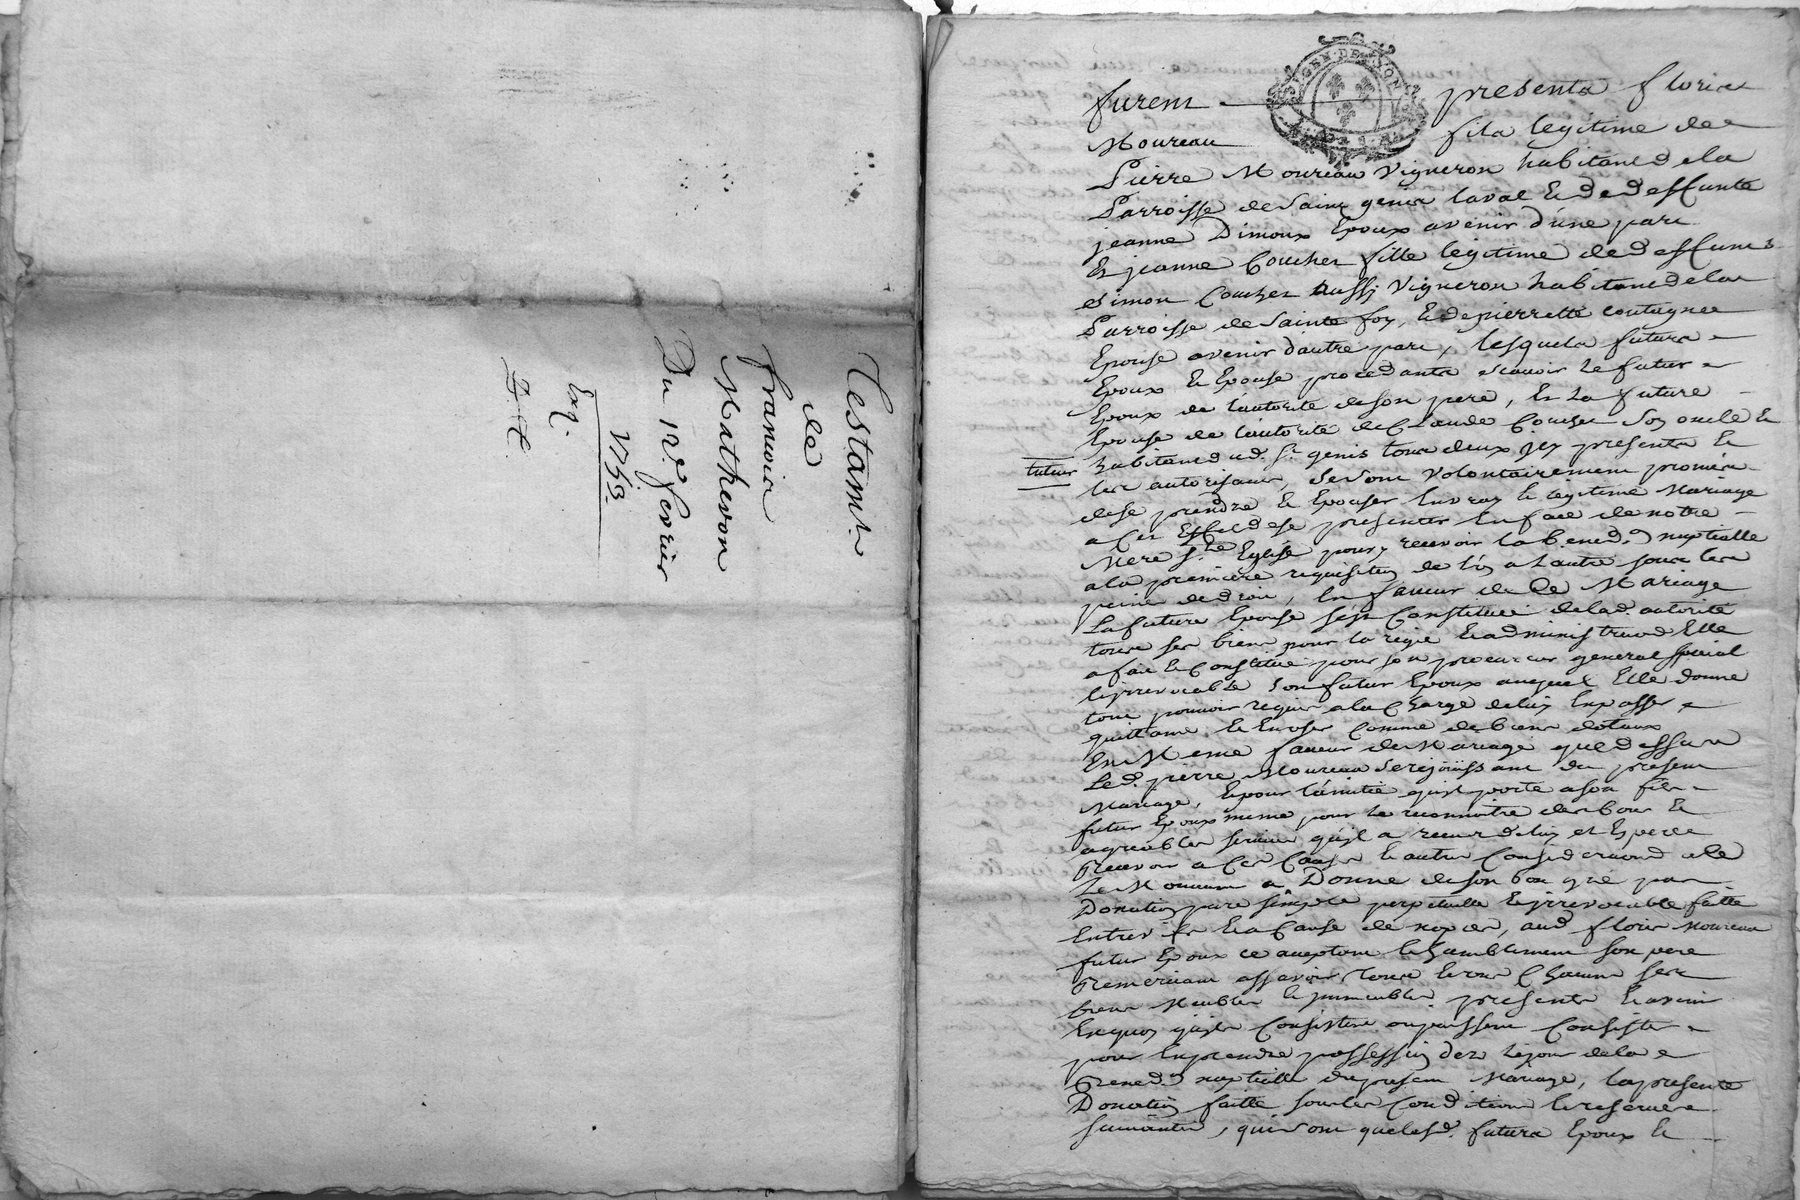 Testamt.
de
francoise
Mathevon
Du 12e. fevrier
1753.
Exp.
GEN DE LYON
furent presents floris
Moureau fils legitime de
Pierre Moureau Vigneron habitant de la
Parroisse de Saint genis laval Et de deffunte
jeanne Dimoux Epoux avenir d'une part
Et jeanne Couchet fille legitime de deffunct
simon Couchet aussy Vigneron habitant de la
Parroisse de Sainte foy, Et de pierrette
Epouse avenir d'autre part, lesquels futurs
Epoux Et Epouse procedants scavoir le futur
Epoux de l'autorité de son pere, Et la future
Epouse de l'autorité de Claude Couchet Son oncle Et
tuteur habitant ud. St. genis tous deux jcy presents Et
les autorisant, se sont volontairement promis
de se prendre Et Epouser En vray Et legitime Mariage
a Cet Effet de se presenter En face de notre
Mere Ste. Eglise pour y recevoir la bened.on nuptialle
a la premiere requisition de l'un a l'autre sous les
peine de droit, En faveur de Ce Mariage
La future Epouse s'est Constituée de lad. autorité
tous ses biens pour la regie Et administraon Elle
a fait Et Constitué pour son procureur general special
Et jrrevocable son futur Epoux auquel Elle donne
tout pouvoir requis a la Charge de luy En passer
quittance Et Comme de biens dotaux
En Meme faveur de Mariage que dessus
Led. pierre Moureau Se rejoüissant du present
Mariage, Et pour l'amitié qu'il porte a son fils
futur Epoux meme pour le reconnoitre des bons Et
agreables services qu'il a recus de luy et Espere
Recevoir a Ces Causes Et autres Considerations led.
Le Moureau a Donné de son bon gré par
Donation pure simple perpetuelle Et jrrevocable faitte
Entre vifs Et a Cause de nopces, aud. floris Moureau
futur Epoux ce acceptant Et humblement son pere
Remerciant assavoir tous Et un Chacun ses
biens Meubles Et jmmeubles presents Et avenir
En quoy qu'ils Consistent ou puissent Consister
pour En prendre possession dez le jour de la
Bened.on nuptialle du present Mariage, la presente
Donation faitte sous les Conditions Et reserves
suivantes, qui sont que lesd. futurs Epoux Et